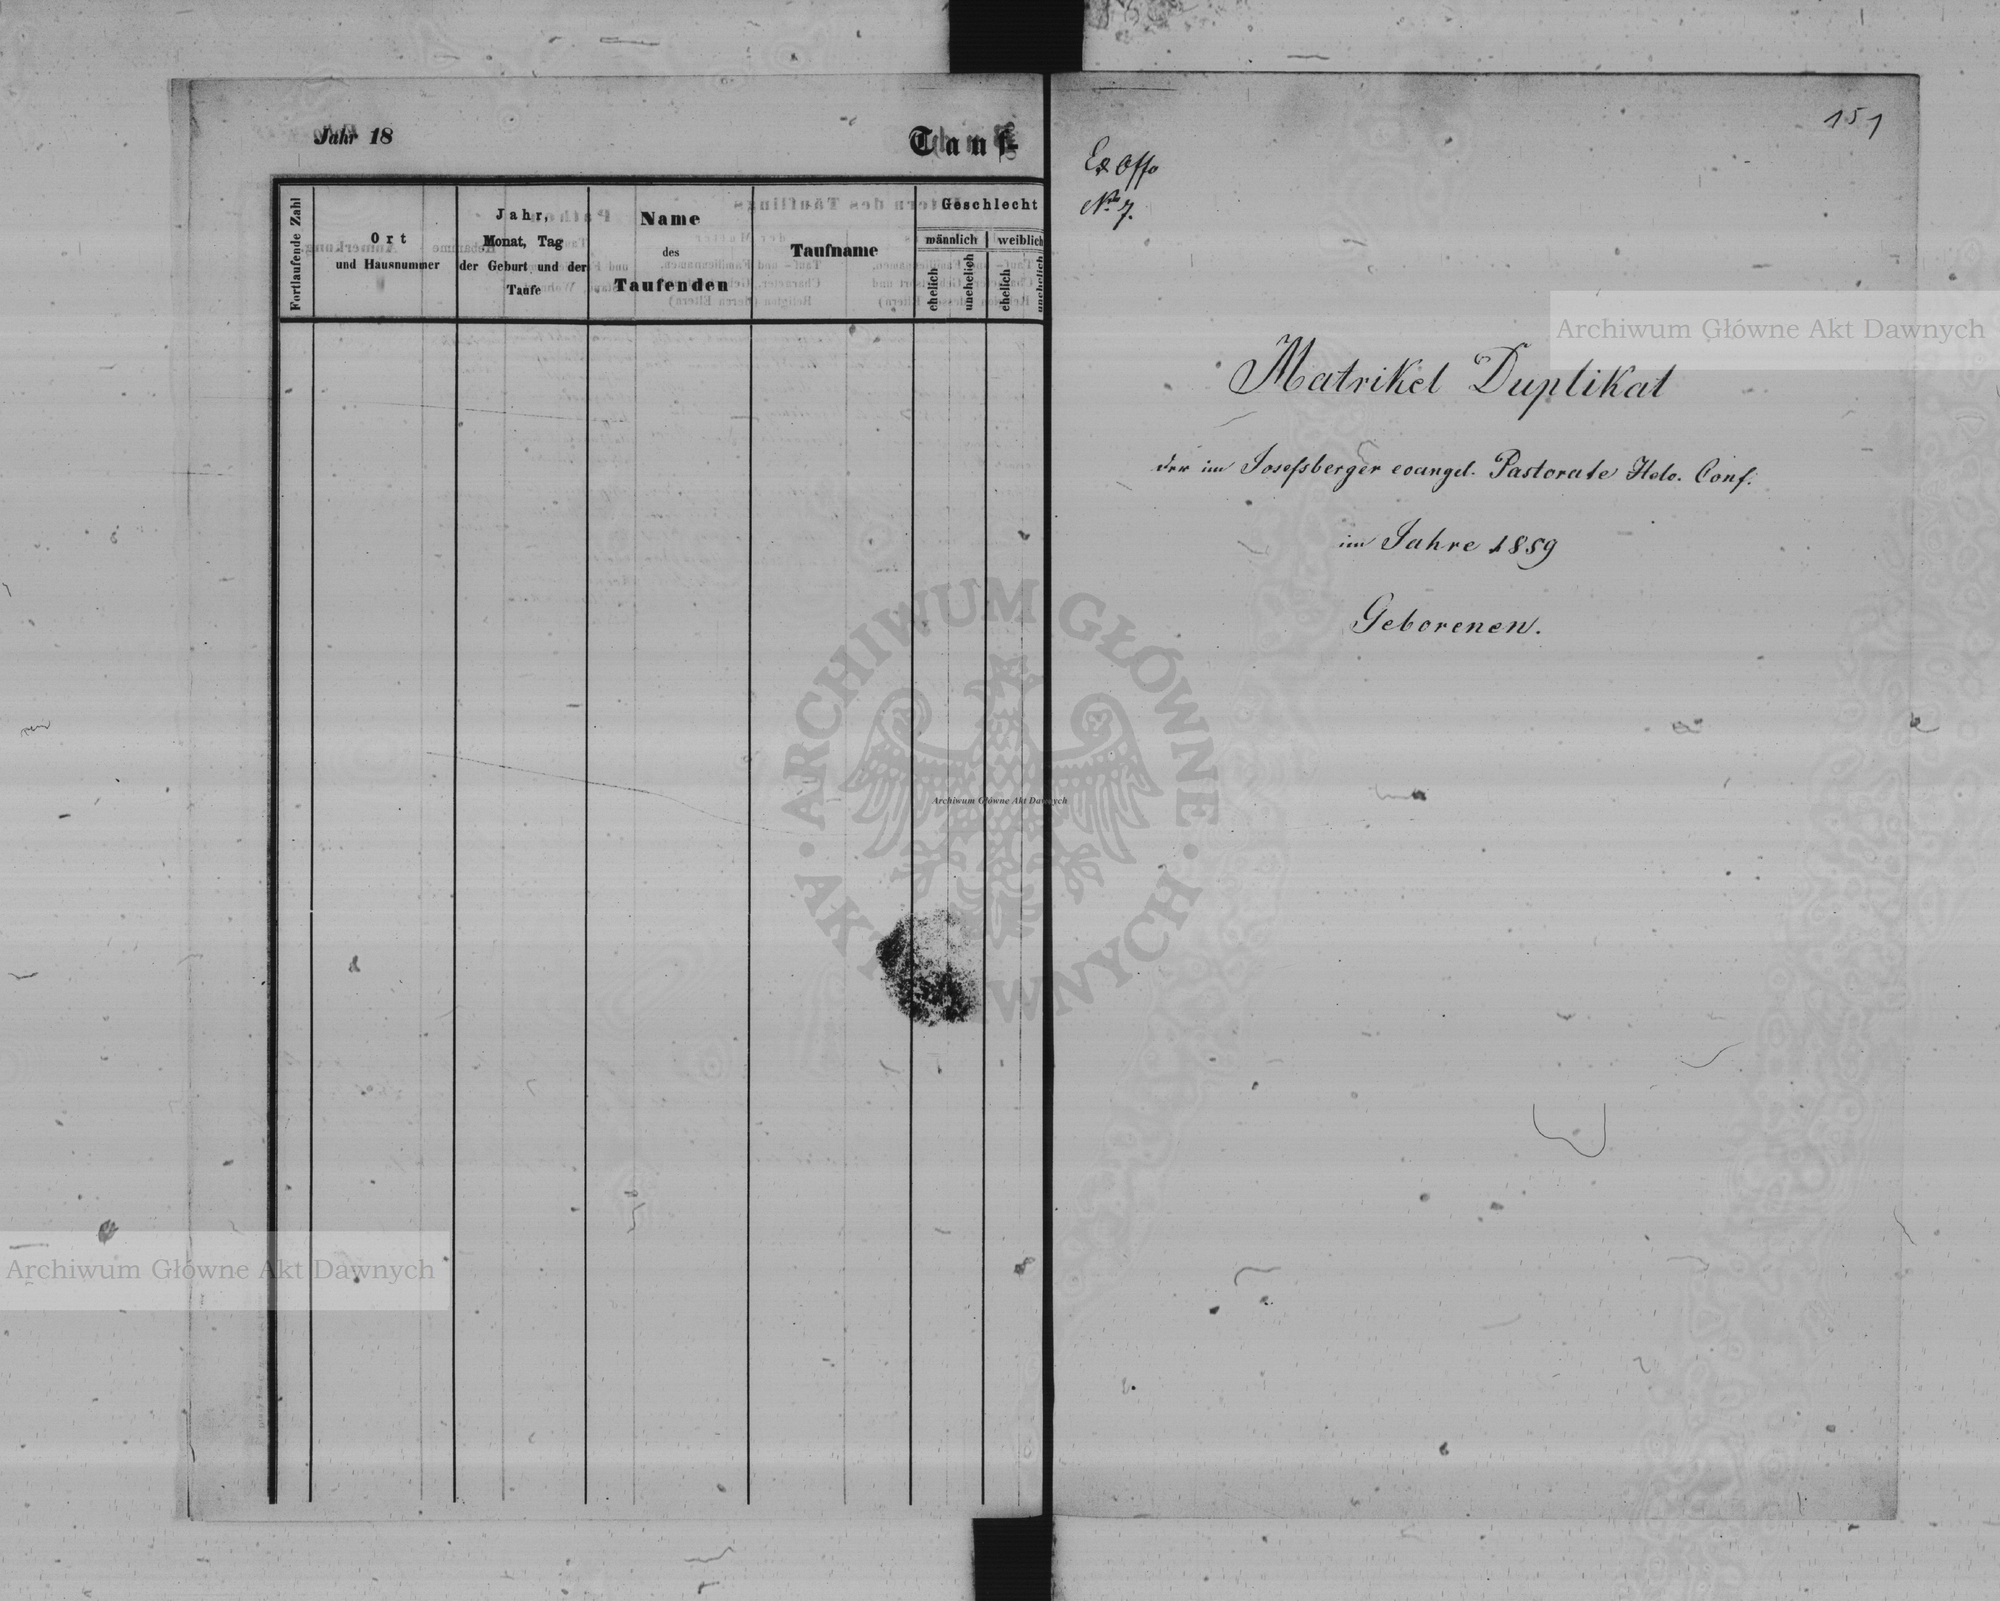 Jahr 18
Tauf-
Fortlaufende Zahl
Ort
und Hausnummer
Jahr,
Monat, Tag
der Geburt und der
Taufe
Name
des
Taufenden
Taufname
Geschlecht
männlich
weiblich
ehelich
unehelich
ehelich
unehelich
151
Ex Offo
Nro 7.
Matrikel Duplikat
der im Josefsberger evangel. Pastorate Helv. Conf.
im Jahre 1859
Geborenen.
Archiwum Główne Akt Dawnych
ARCHIWUM GŁÓWNE
Archiwum Główne Akt Dawnych
Archiwum Główne Akt Dawnych